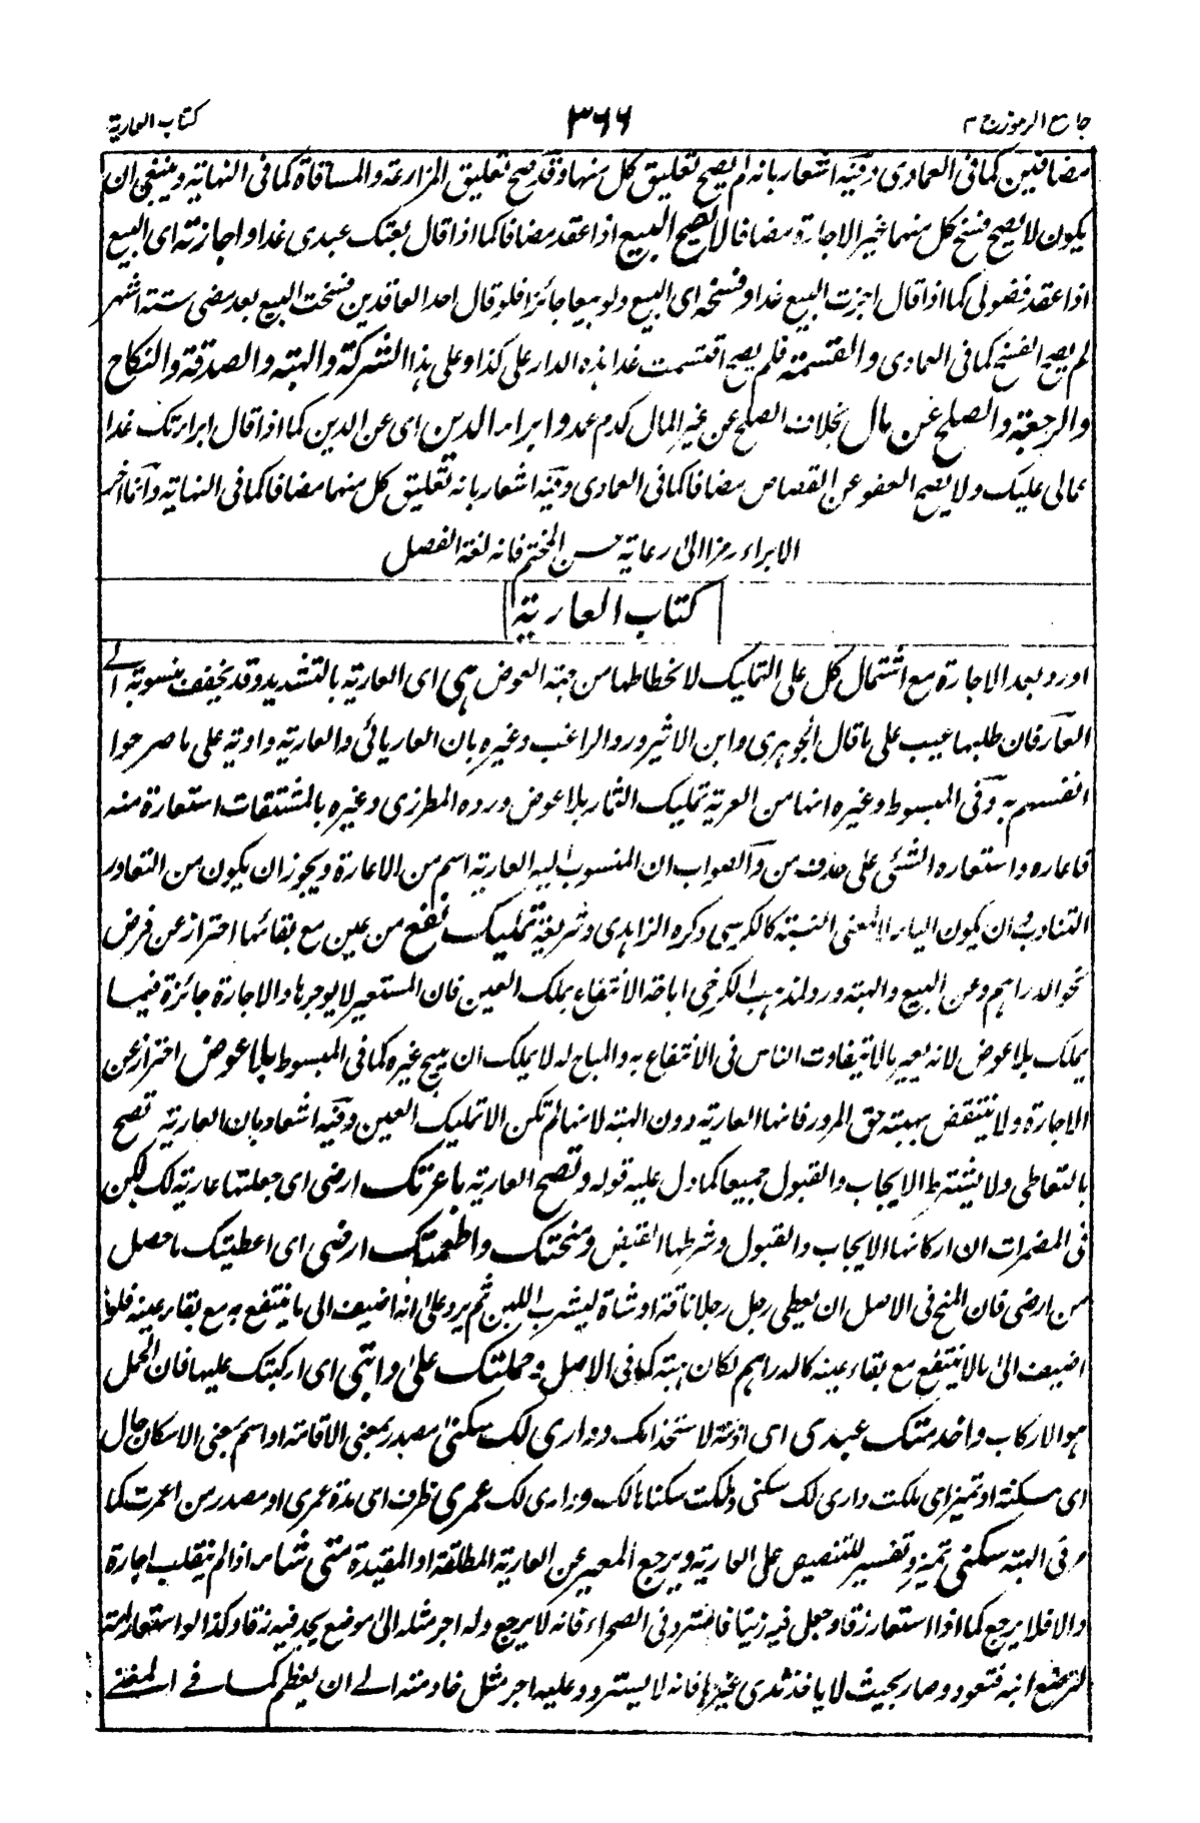 جامع الرموز ج ٣
٣٦٦
كتاب العارية
مضافين كما في العمادى وفيه اشعار بانه لم يصح تعليق كل منها وقد صح تعليق المزارعة والمساقاة كما في النهاية وينبغى ان
يكون لا يصح فسخ كل منهما غير الاجارة مضافا لا يصح البيع اذا عقد مضافا كما اذا قال بعتك عبدى غدا واجازته اى البيع
اذا عقد فضولى كما اذا قال اجزت البيع غدا وفسخه اى البيع ولو بيعا جائزا فلو قال احد العاقدين فسخت البيع بعد مضى ستة اشهر
لم يصح الفسخ كما في العمادى والقسمة فلم يصح اقتسمت غدا هذه الدار على كذا وعلى هذا الشركة والهبة والصدقة والنكاح
والرجعة والصلح عن مال بخلاف الصلح عن غير المال كدم عمد وابراء الدين اى عن الدين كما اذا قال ابرأتك غدا
عمالى عليك ولا يصح العفو عن القصاص مضافا كما في العمادى وفيه اشعار بانه تعليق كل منها مضافا كما في النهاية وانما اخر
الابراء رمزا الى رعاية حسن المختم فانه لغة الفصل
كتاب العارية
اورد بعد الاجارة مع اشتمال كل على التمليك لانحطاطها من جهة العوض هى اى العارية بالتشديد وقد يخفف منسوبة الى
العار فان طلبها عيب على ما قال الجوهرى وابن الاثير ورد الراغب وغيره بان العار يائى والعارية واوية على ما صرحوا
انفسهم به وفى المبسوط وغيره انها من العرية تمليك الثمار بلا عوض ورده المطرزى وغيره بالمشتقات استعارة منه
فاعاره واستعاره الشئى على حذف من والصواب ان المنسوب اليه العارية اسم من الاعارة ويجوز ان يكون من التعاور
التناوب ان يكون الياء لا لمعنى النسبة كالكرسى ذكره الزاهدى وشريعة تمليك نفع من عين مع بقائها احتراز عن قرض
نحو الدراهم وعن البيع والهبة ورد لمذهب الكرخى اباحة الانتفاع بملك العين فان المستعير لا يوجرها والاجارة جائزة فيما
يملك بلا عوض لانه يعير مالا يتفاوت الناس فى الانتفاع به والمباح له لا يملك ان يبيح غيره كما فى المبسوط بلا عوض احتراز عن
الاجارة ولا ينتقض بهبة حق المرور فانها العارية دون الهبة لانها لم تكن الا تمليك العين وفيه اشعار بان العارية تصح
بالتعاطى ولا يشترط الايجاب والقبول جميعا كما دل عليه قوله وتصح العارية باعرتك ارضى اى جعلتها عارية لك لكن
فى المضمرات ان اركانها الايجاب والقبول وشرطها القبض ومنحتك واطعمتك ارضى اى اعطيتك ما حصل
من ارضى فان المنح فى الاصل ان يعطى رجل رجلا ناقة او شاة ليشرب اللبن ثم يرد على انه اضيف الى ما ينتفع به مع بقاء عينه فلو
اضيف الى مالا ينتفع مع بقاء عينه كالدراهم لكان هبة كما فى الاصل وحملتك على دابتى اى اركبتك عليها فان الحمل
هو الاركاب واخدمتك عبدى اى اذنته لاستخدامك ودارى لك سكنى مصدر بمعنى الاقامة او اسم بمعنى الاسكان حال
اى مسكنة او تميز اى ملكت دارى لك سكنى وملكت سكناها لك ودارى لك عمرى ظرف اى مدة عمرى او مصدر من اعمرت كما
مر فى الهبة سكنى تميز وتفسير للتنصيص على العارية ويرجع المعير عن العارية المطلقة او المقيدة متى شاء اذا لم ينقلب اجارة
والا فلا يرجع كما اذا استعار زقا وجعل فيه زيتا فاسترد فى الصحراء فانه لا يرجع وله اجر مثله الى موضع يجد فيه زقا وكذا لو استعار امة
لترضع ابنه فتعود وصار بحيث لا ياخذ ثدى غيرها فانه لا يسترد وعليه اجر مثل خادمته الى ان يفطم كما فى المغنى